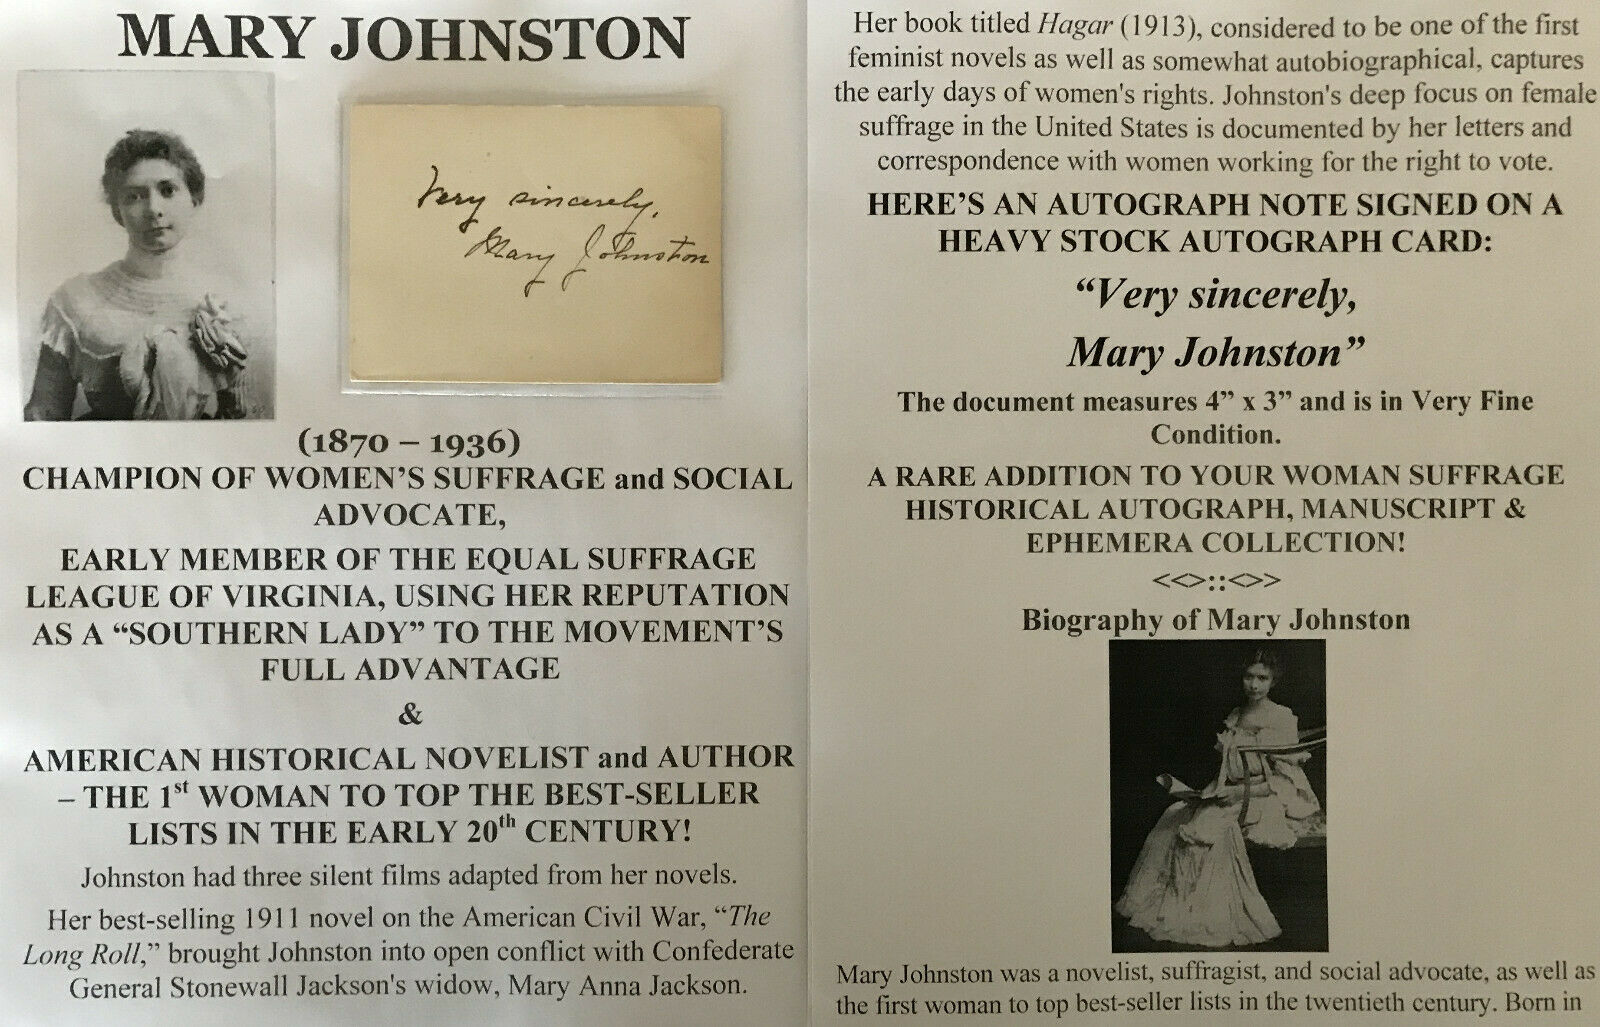 MARY JOHNSTON
Very sincerely,
Mary Johnston
(1870 – 1936)
CHAMPION OF WOMEN'S SUFFRAGE and SOCIAL
ADVOCATE,
EARLY MEMBER OF THE EQUAL SUFFRAGE
LEAGUE OF VIRGINIA, USING HER REPUTATION
AS A “SOUTHERN LADY” TO THE MOVEMENT'S
FULL ADVANTAGE
&
AMERICAN HISTORICAL NOVELIST and AUTHOR
– THE 1st WOMAN TO TOP THE BEST-SELLER
LISTS IN THE EARLY 20th CENTURY!
Johnston had three silent films adapted from her novels.
Her best-selling 1911 novel on the American Civil War, “The
Long Roll,” brought Johnston into open conflict with Confederate
General Stonewall Jackson's widow, Mary Anna Jackson.
Her book titled Hagar (1913), considered to be one of the first
feminist novels as well as somewhat autobiographical, captures
the early days of women's rights. Johnston's deep focus on female
suffrage in the United States is documented by her letters and
correspondence with women working for the right to vote.
HERE'S AN AUTOGRAPH NOTE SIGNED ON A
HEAVY STOCK AUTOGRAPH CARD:
“Very sincerely,
Mary Johnston”
The document measures 4” x 3” and is in Very Fine
Condition.
A RARE ADDITION TO YOUR WOMAN SUFFRAGE
HISTORICAL AUTOGRAPH, MANUSCRIPT &
EPHEMERA COLLECTION!
<<>::<>>
Biography of Mary Johnston
Mary Johnston was a novelist, suffragist, and social advocate, as well as
the first woman to top best-seller lists in the twentieth century. Born in